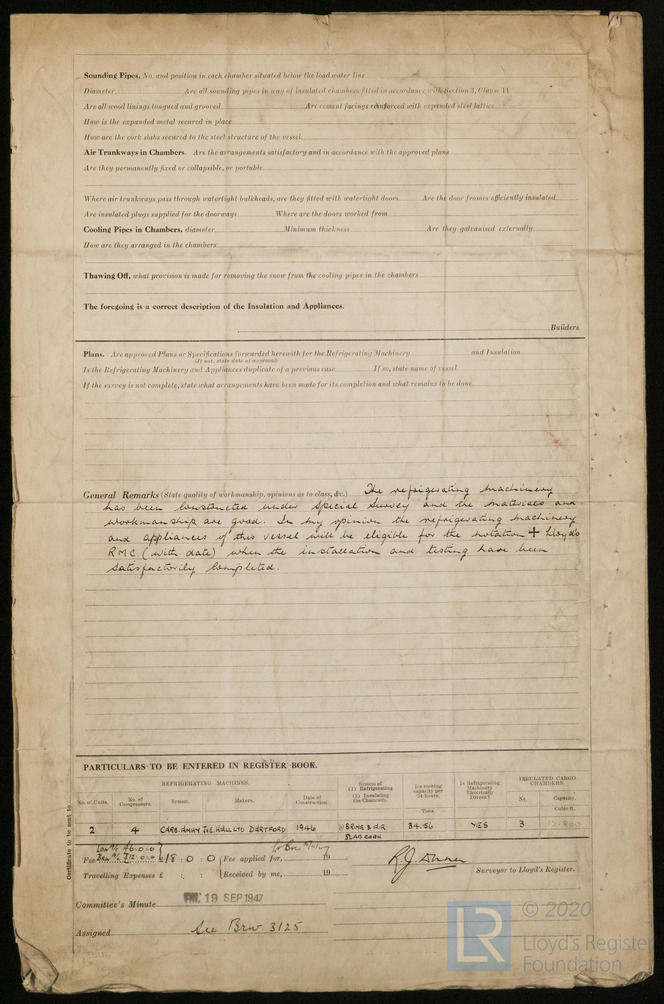 Sounding Pipes, No. and position in each chamber situated below the load water line
Diameter Are all sounding pipes in way of insulated chambers fitted in accordance with Section 3, Clause 11
Are all wood linings tongued and grooved Are cement facings reinforced with expanded steel lattice
How is the expanded metal secured in place
How are the cork slabs secured to the steel structure of the vessel
Air Trunkways in Chambers. Are the arrangements satisfactory and in accordance with the approved plans
Are they permanently fixed or collapsible, or portable
Where air trunkways pass through watertight bulkheads, are they fitted with watertight doors Are the door frames efficiently insulated
Are insulated plugs supplied for the doorways Where are the doors worked from
Cooling Pipes in Chambers, diameter Minimum thickness Are they galvanised externally
How are they arranged in the chambers
Thawing Off, what provision is made for removing the snow from the cooling pipes in the chambers
The foregoing is a correct description of the Insulation and Appliances.
Builders
Plans. Are approved Plans or Specifications forwarded herewith for the Refrigerating Machinery and Insulation
(If not, state date of approval)
Is the Refrigerating Machinery and Appliances duplicate of a previous case If so, state name of vessel
If the survey is not complete, state what arrangements have been made for its completion and what remains to be done
General Remarks (State quality of workmanship, opinions as to class, &c.) The refrigerating machinery
has been constructed under Special Survey and the materials and
workmanship are good. In my opinion the refrigerating machinery
and appliances of this vessel will be eligible for the notation + Lloyd's
RMC (with date) when the installation and testing have been
satisfactorily completed.
PARTICULARS TO BE ENTERED IN REGISTER BOOK.
REFRIGERATING MACHINES.
System of (1) Refrigerating (2) Insulating the Chambers.
Ice melting capacity per 24 hours.
Is Refrigerating Machinery Electrically Driven?
INSULATED CARGO CHAMBERS.
No. of Units. No. of Compressors. System. Makers. Date of Construction. Tons. No. Capacity. Cubic ft.
2 4 CARB. ANHY J & E. HALL LTD DARTFORD 1946 (1) BRINE & AIR 34.56 YES 3
SLAB CORK
Certificate to be sent to
Lon % £6:0:0
Fee £18:0:0 Fee applied for, 19
Travelling Expenses £ : : Received by me, 19
Surveyor to Lloyd's Register.
Committee's Minute FRI. 19 SEP 1947
Assigned See Brw 3125
LR
© 2020
Lloyd's Register
Foundation